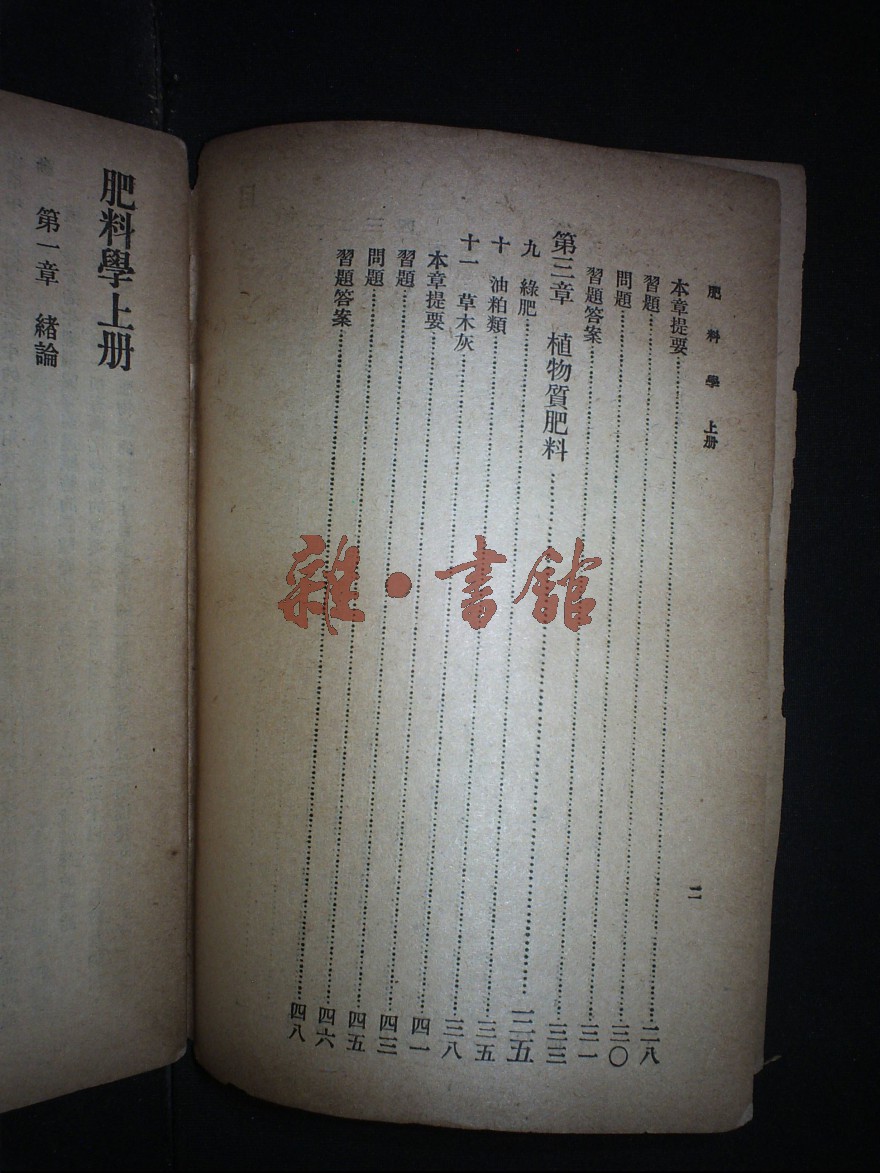 肥料學 上册
二
本章提要……二八
習題……三〇
問題……三一
習題答案……三三
第三章 植物質肥料……三五
九 綠肥……三五
十 油粕類……三八
十一 草木灰……四一
本章提要……四三
習題……四五
問題……四六
習題答案……四八
肥料學上册
第一章 緒論
雜·書館